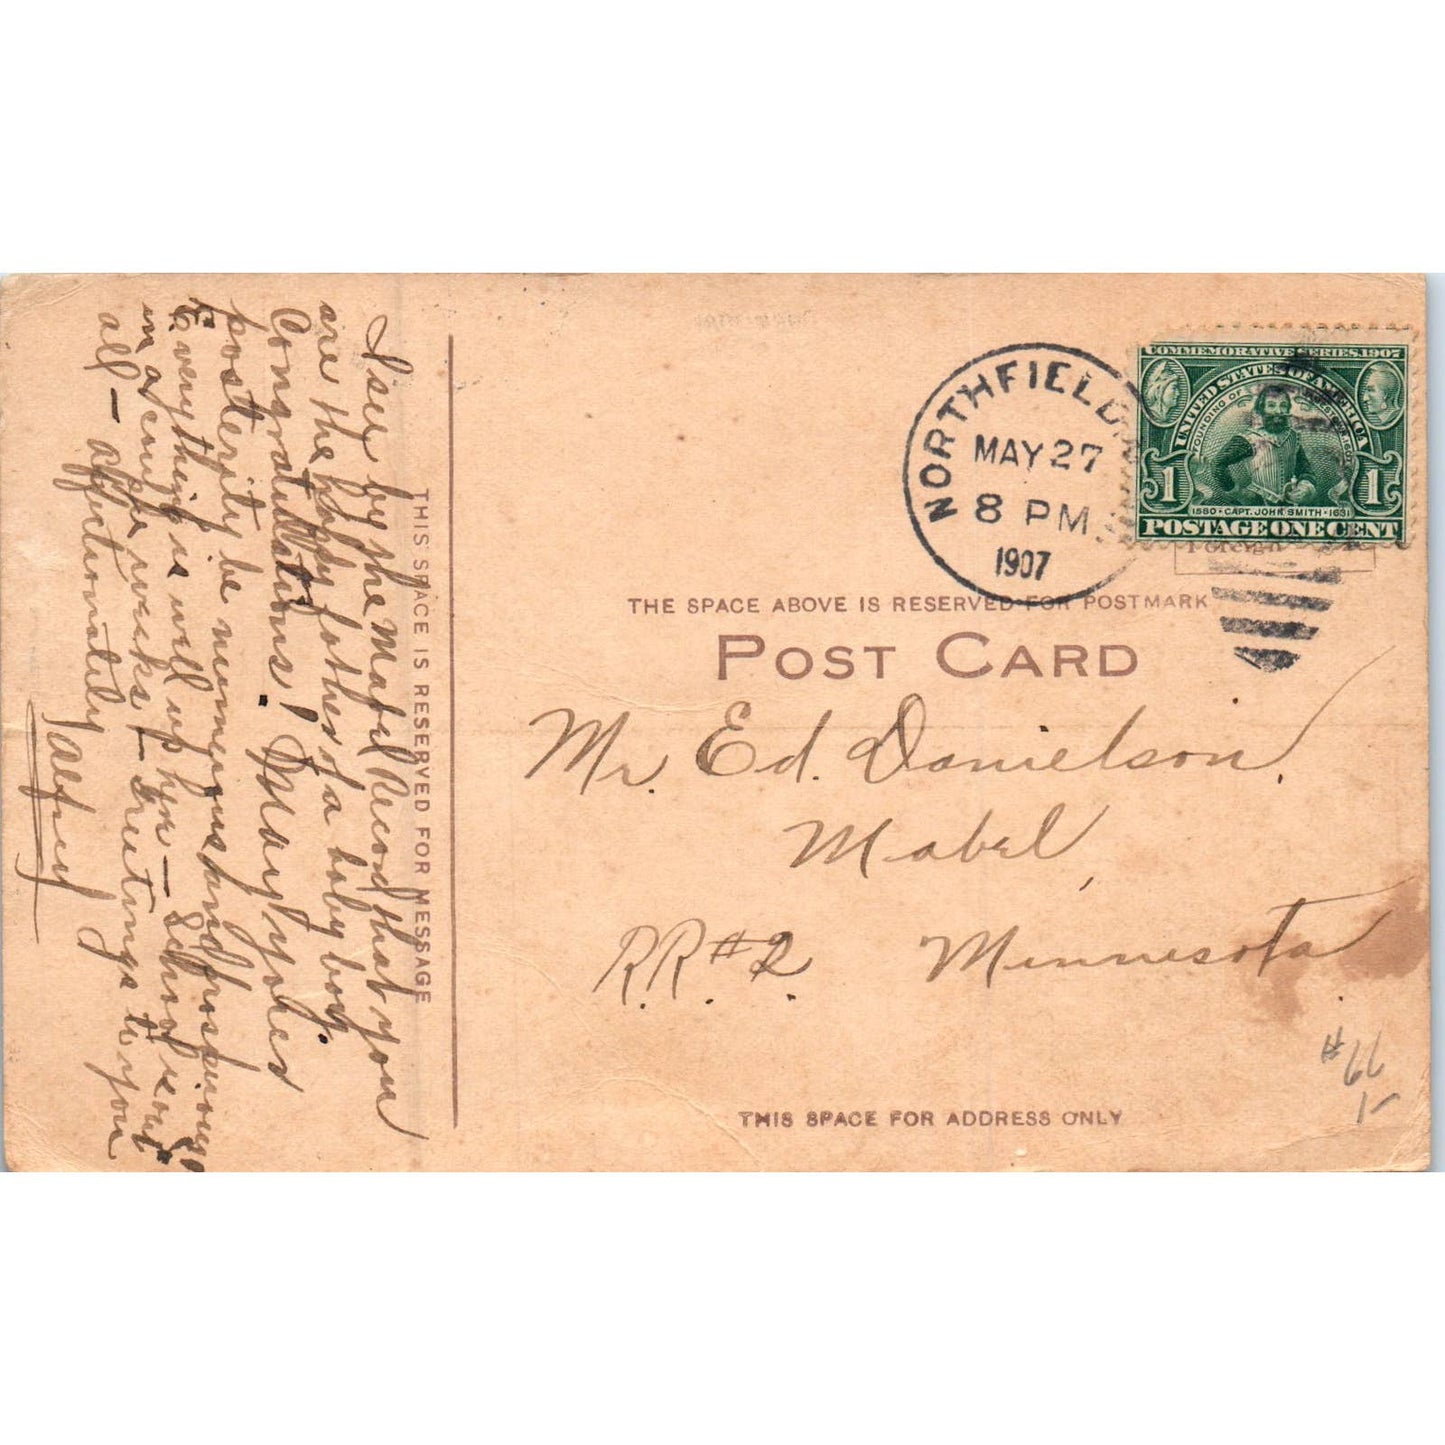 I see by the Mabel Record that you
are the happy father of a baby boy.
Congratulations! May your
posterity be numerous and prosperous
Everything is well up here — School is out
in a couple weeks — Greetings to you
all — Affectionately
Alfred
THIS SPACE IS RESERVED FOR MESSAGE
NORTHFIELD
MAY 27
8 PM
1907
COMMEMORATIVE SERIES 1907
UNITED STATES OF AMERICA
FOUNDING OF
1 1
1580 · CAPT. JOHN SMITH · 1631
POSTAGE ONE CENT
Foreign
THE SPACE ABOVE IS RESERVED FOR POSTMARK
POST CARD
Mr. Ed. Danielson,
Mabel,
R.R. #2. Minnesota.
#66
1-
THIS SPACE FOR ADDRESS ONLY